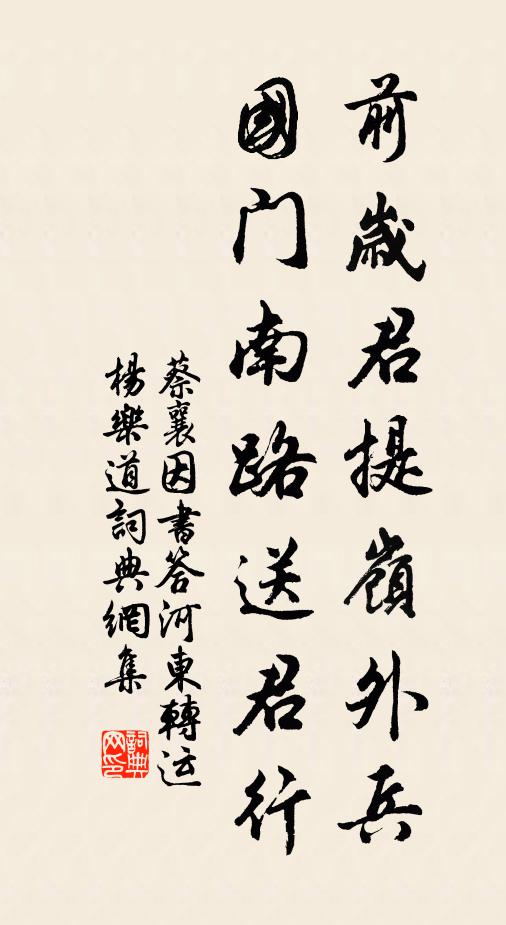 前歲君提嶺外兵
國門南路送君行
蔡襄因書答河東轉运
楊樂道詞典網集
詞典网印